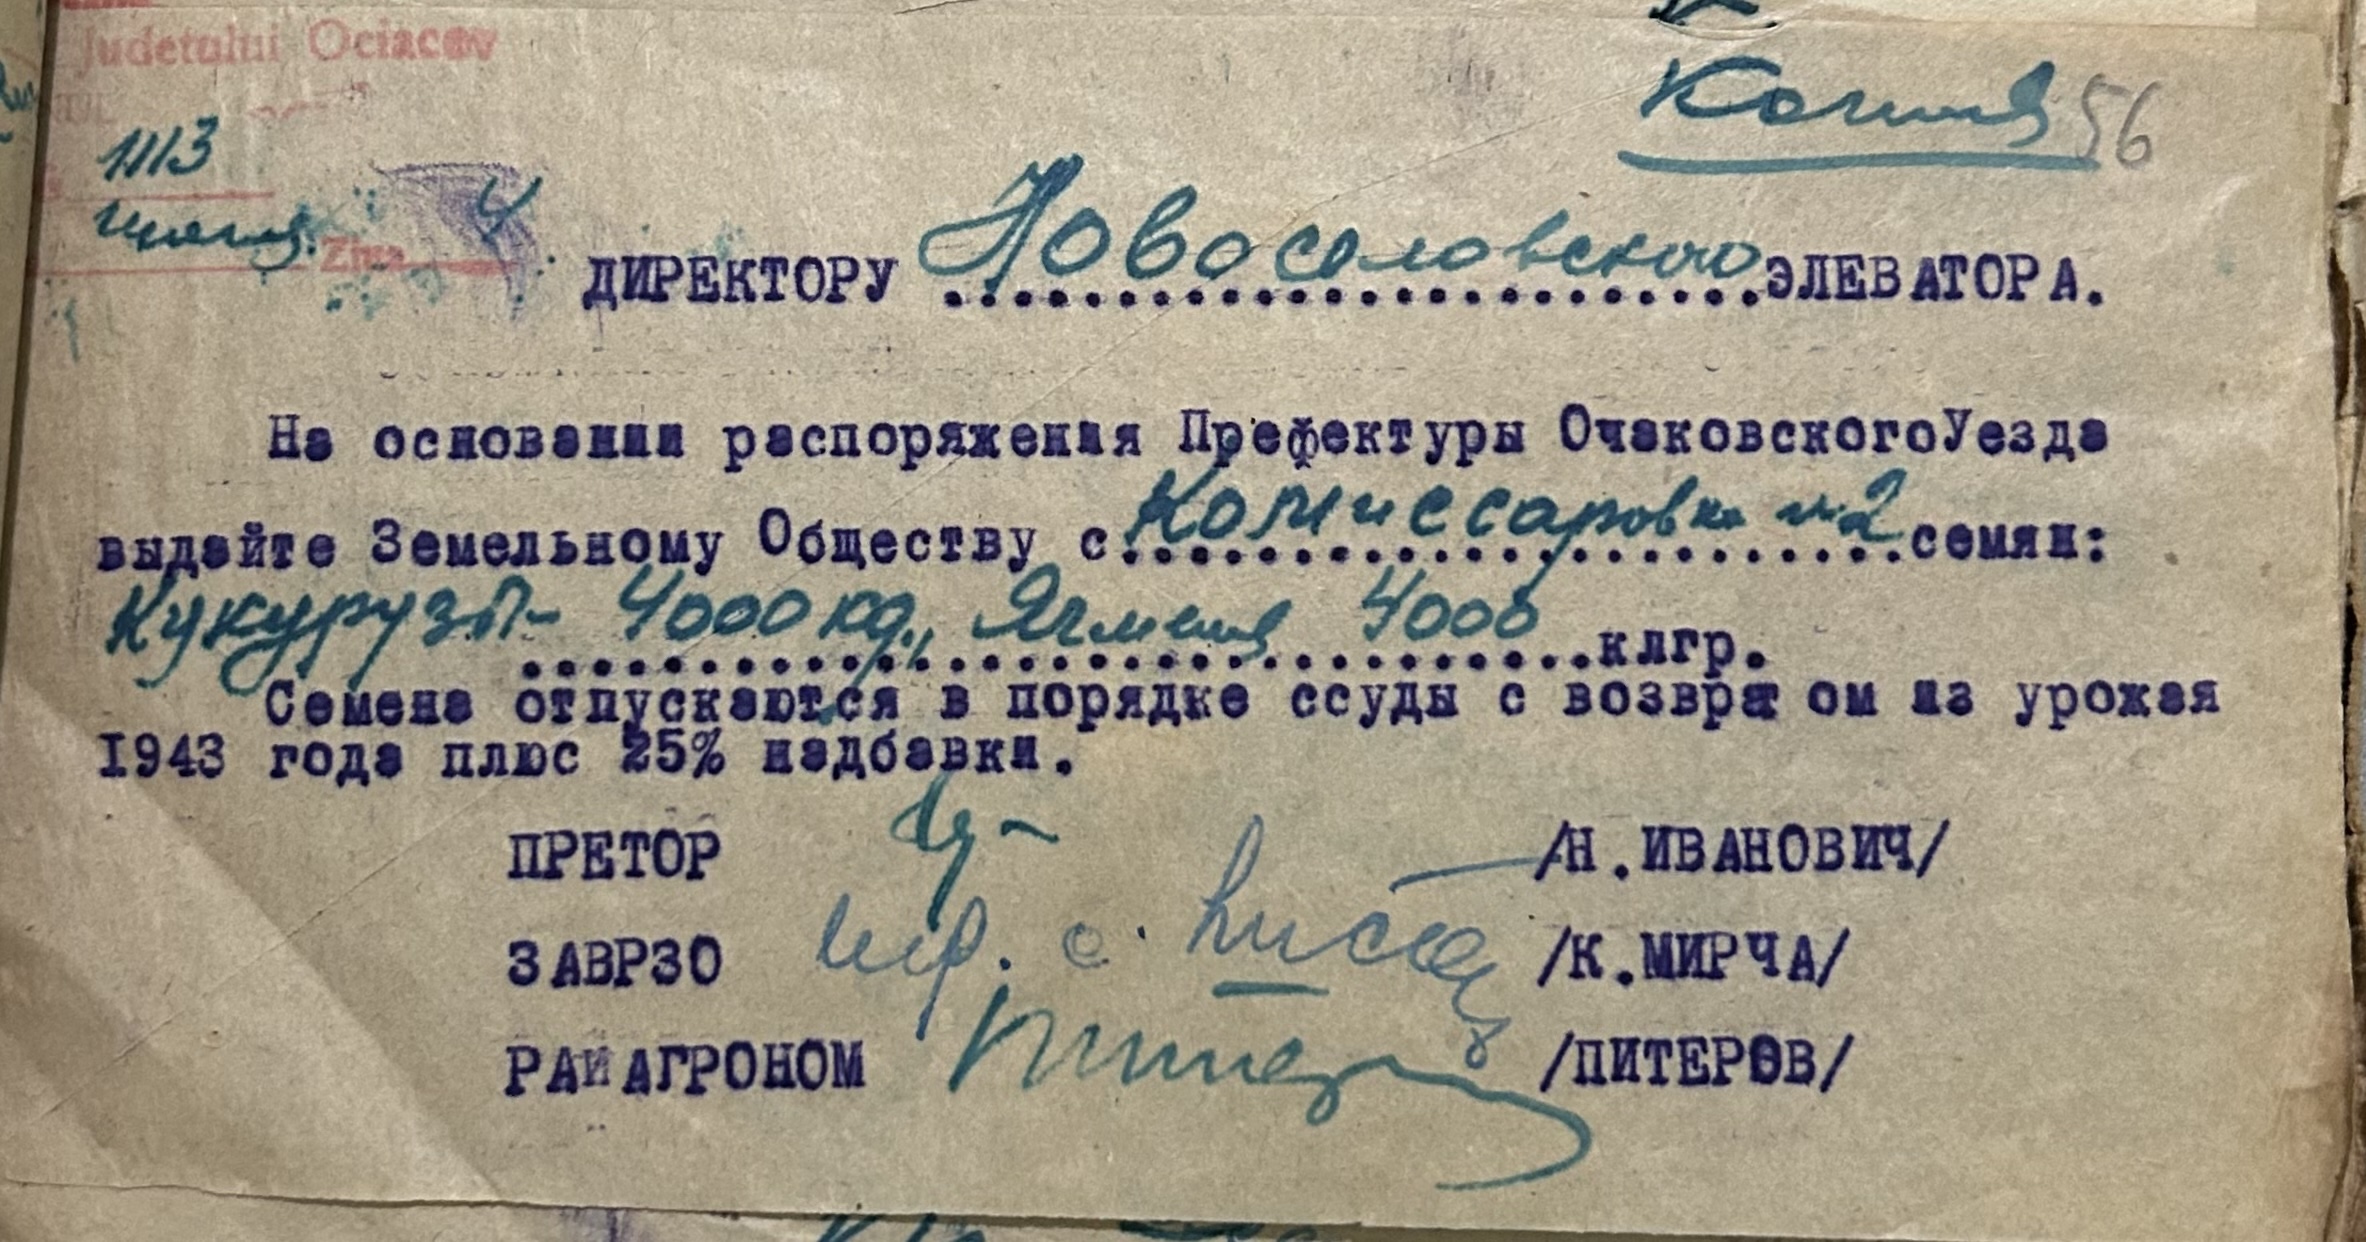 Judetului Ociacov
Копия 56
1113
июня 4
Ziua
ДИРЕКТОРУ Новоселовского ЭЛЕВАТОРА.
На основании распоряжения Префектуры ОчаковскогоУезда
выдайте Земельному Обществу с. Комиссаровка №2 семян:
Кукурузы - 4000 кг., Ячменя 4000 клгр.
Семена отпускаются в порядке ссуды с возврат ом из урожая
1943 года плюс 25% надбавки.
ПРЕТОР /Н.ИВАНОВИЧ/
ЗАВРЗО /К.МИРЧА/
РАЙАГРОНОМ Питер /ПИТЕРОВ/